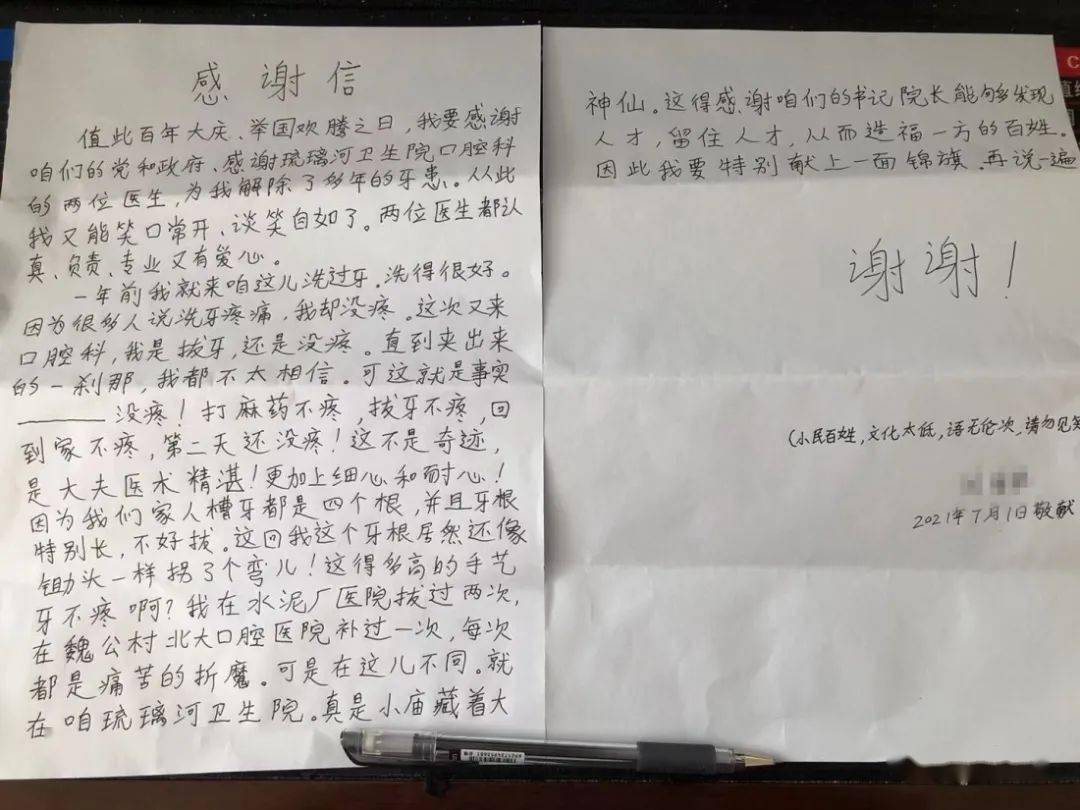 感谢信
值此百年大庆、举国欢腾之日,我要感谢
咱们的党和政府、感谢琉璃河卫生院口腔科
的两位医生,为我解除了多年的牙患。从此
我又能笑口常开、谈笑自如了。两位医生都认
真、负责、专业又有爱心。
一年前我就来咱这儿洗过牙.洗得很好。
因为很多人说洗牙疼痛,我却没疼。这次又来
口腔科,我是拔牙,还是没疼。直到夹出来
的一刹那,我都不太相信。可这就是事实
——没疼!打麻药不疼,拔牙不疼,回
到家不疼,第二天还没疼!这不是奇迹,
是大夫医术精湛!更加上细心和耐心!
因为我们家人槽牙都是四个根,并且牙根
特别长,不好拔。这回我这个牙根居然还像
锄头一样拐了个弯儿!这得多高的手艺
牙不疼啊?我在水泥厂医院拔过两次,
在魏公村北大口腔医院补过一次,每次
都是痛苦的折魔。可是在这儿不同。就
在咱琉璃河卫生院。真是小庙藏着大
神仙。这得感谢咱们的书记院长能够多发现
人才,留住人才,从而造福一方的百姓。
因此我要特别献上一面锦旗.再说一遍
谢谢!
(小民百姓,文化太低,语无伦次,请勿见
2021年7月1日敬献